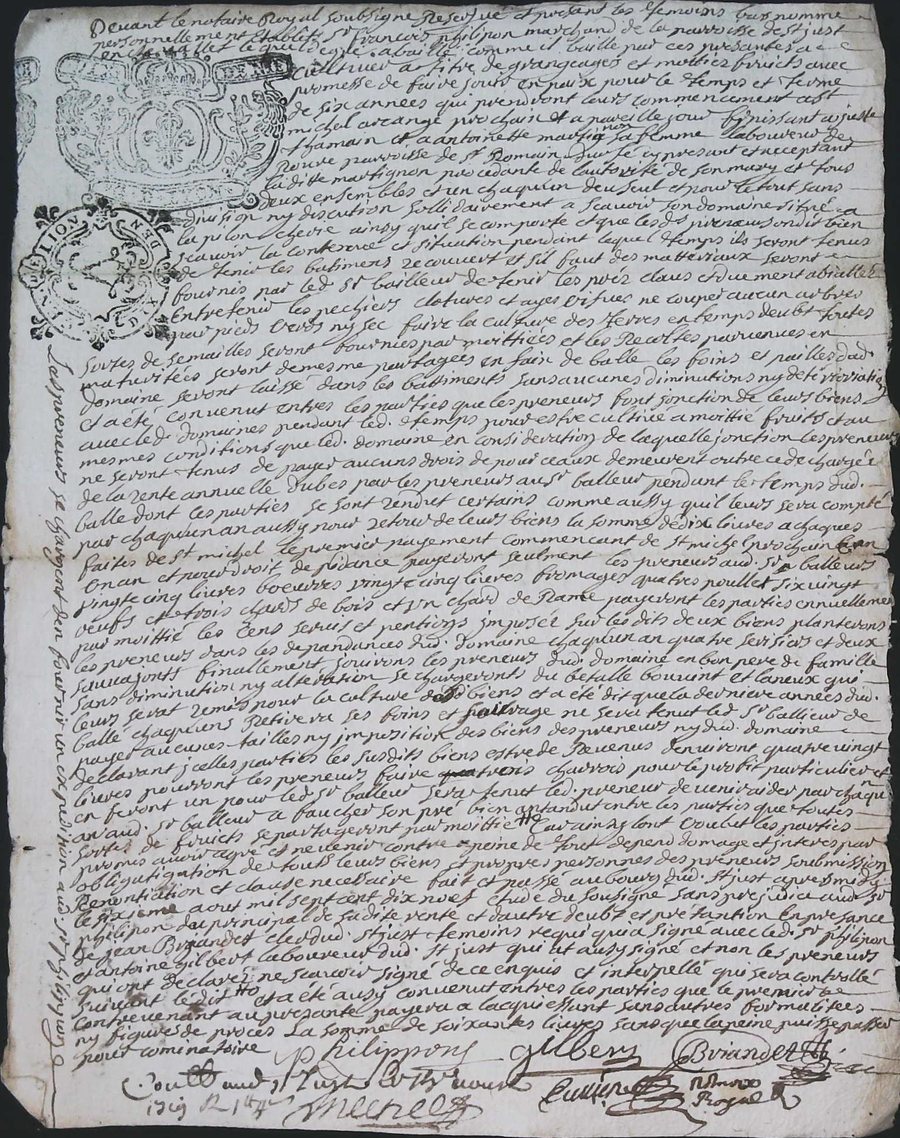 Devant le notaire Royal soubsigné Reservé et presant les temoins bas nommé
personnellement establit Sr francois philipon marchand de la parroisse de st just
en chevallet lequel de gré a baillé comme il baille par ces presantes a
cultiver a titre de grangeages et moitiés fruicts avec
promesse de faire jouir en paix pour le temps et terme
de six années qui prendront leurs commencement a st
michel arcange prochain et a pareille jour finissant a
et antoinette martignon sa femme laboureur de
parroisse de st Romain d'urfe cy presant et acceptant
ladite martignon procedante de lautorité de son mary et tous
deux ensembles et un chaqu'un deux seul et pour le tout sans
division ny discution sollidairement a scavoir son domaine situé a
la pilon chevre ainsy quil se comporte et que lesds preneurs ont dit bien
scavoir la contenue et situation pendant lequel temps ils seront tenus
de tenir les batimens recouvert et sil faut des matteriaux seront
fournis par led. Sr bailleur de tenir les prés claus et duement
Entretenir les pechiers clotures et ayes vifves ne couper aucun arbres
par pieds verds ny sec faire la culture des terres en temps deubt toutes
sortes de semailles seront fournies par moittiés et les Recoltes parvenues en
maturitées seront de mesme partagées en fain de balle les foins et pailles dud.
domaine seront laissé dans les battiments sans aucunes diminutions ny deterioriation
et a été convenut entres les parties que les preneurs font jonction de leurs biens
avec led. domaines pendant led. temps pour estre cultivé a moittié fruits et au
mesmes conditions que led. domaine en consideration de laquelle jonction les preneurs
ne seront tenus de payer aucuns drois de pourceaux demeurent outre ce decharge
de la rente annuelle dubes par les preneurs aud Sr balleur pendant le temps dud.
balle dont les parties se sont rendut certains comme aussy quil leurs sera compté
par chaqu'un an aussy pour retour de leurs biens la somme de dix livres a chaques
faites de st michel le premier payement commencant de st michel prochain
en an et pour droit de pidance payeront seulment les preneurs aud. Sr balleurs
vingte cinq livres boeurres vingte cinq livres fromages quatres poullet six vingt
oeufs et trois chards de bois et un chard de Rame payeront les parties ennuellement
par moittié les cens servis et pentions imposer sur les dits deux biens planterons
les preneurs dans les depandances dud. domaine chaqu'un an quatre serisiers et deux
sauvagonts finallement jouirons les preneurs dud. domaine en bon pere de famille
sans diminution ny alteration se chargeronts du betalle bouvint et laneux qui
leurs serat remis pour la culture desd biens et a été dit que la derniere années dud.
balle chaqu'uns Retirera ses foins et pailvage ne sera tenut led. Sr ballieur de
payer aucunes tailles ny imposition des biens des preneurs ny dud. domaine
declarant jcelles parties les susdits biens estre de Revenus denviront quatre vingt
livres pourront les preneurs faire trois charrois pour le profit particulier et
en feront un pour led. Sr balleur sera tenut led. preneur de venir aider par chaqu
an aud. Sr balleur a faucher son pré bien antandut entre les parties que toutes
sortes de fruicts se partageront par moittié Car ainsy lont voulut les parties
promis avoir agré et ne venir contre a peine de tous depend domage et interes par
obligatigation de touts leurs biens et propres personnes des preneurs soubmission
Renontiation et clause necessaire fait et passé au bourg dud. St just apres midy
le sixieme aout mil sept cent dix noef Etude du sousigné sans prejudice aud Sr
philipon du principal de sadite rente et dautre deubt et pretantion En presance
de jean Briandet clerc dud. St just temoins requi qui a signé avec led. Sr philipon
et antoine gilbert laboureur dud. St just qui at aussy signé et non les preneurs
qui ont declaré ne scavoir signé de ce enquis et interpellé qui sera controllé
suivant ledit et a été aussy convenut entres les parties que le premier
contrevenant au presante payera a lacquiessant sans autres formalitees
ny figures de proces La somme de soixantes livres sans que la peine puisse passer
pour cominatoire
Philippons gilbert Briandet
Coulland
1719 R
michel
Royal
Les preneurs se chargent den fournir un expedition aud. Sr philipon
GEN DE LION